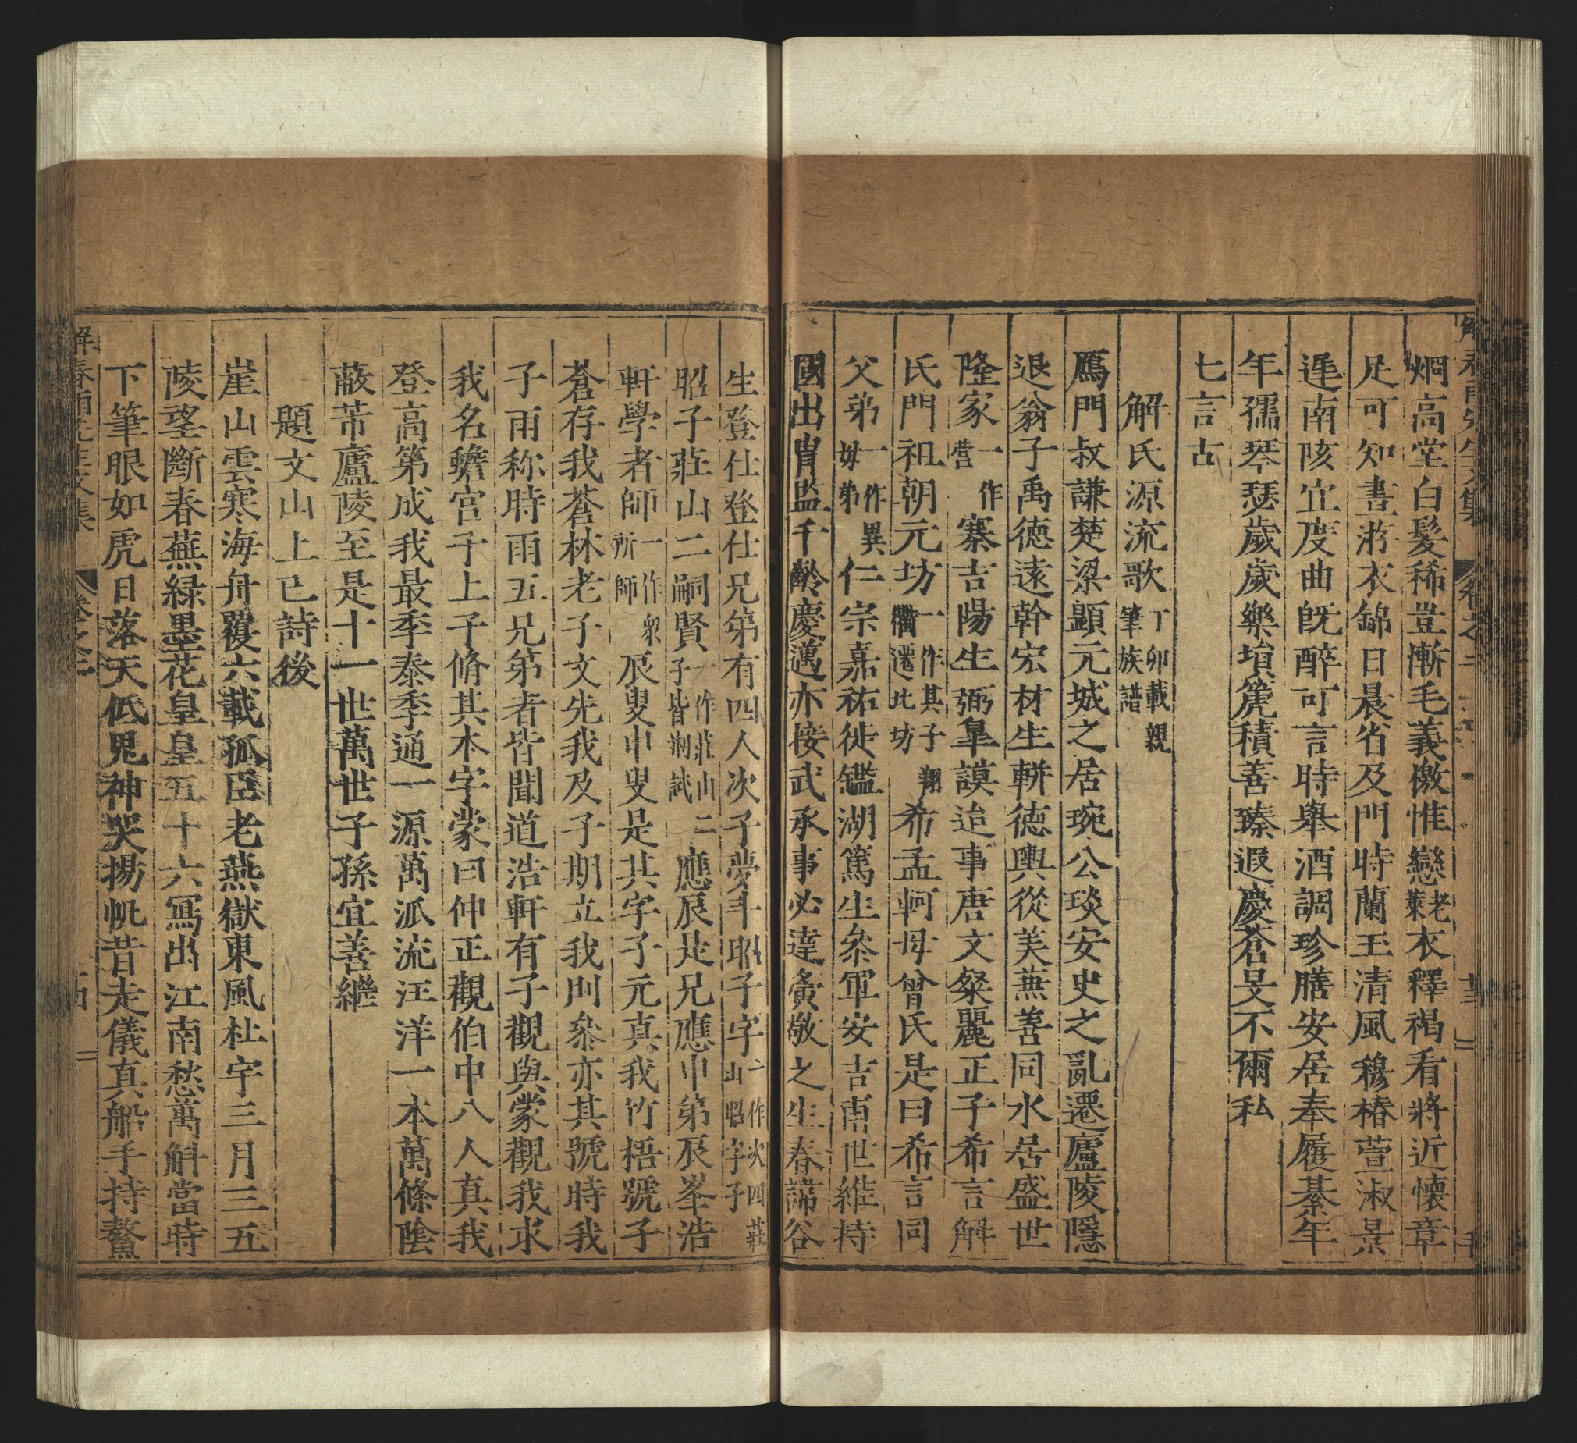 烱高堂白髮稀豈慚毛義檄惟戀老萊衣釋褐看將近懷章
足可知晝游衣錦日晨省及門時蘭玉清風穆椿萱淑景
遲南陔宜度曲旣醉可言時舉酒調珍膳安居奉履綦年
年孺琴瑟歲歲樂塤箎積善臻遐慶蒼旻不爾私
七言古
解氏源流歌丁卯載親筆族譜
鴈門叔謙楚梁顯元城之居琬公琰安史之亂遷廬陵隱
退翁子禹德遠幹宏材生輧德輿從美蕪善同水居盛世
隆家一作營寨吉陽生弼臯謨迨事唐文粲麗正子希言解
氏門祖朝元坊一作其子翔儞遷此坊希孟軻母曾氏是曰希言同
父弟一作異母弟仁宗嘉祐徙鑑湖篤生叅軍安吉甫世維持
國出胄監千齡慶邁亦接武承事必達夤敬之生春諦谷
生登仕登仕兄弟有四人次子夢斗昭子字一作次四莊山昭字子
昭子莊山二嗣賢一作莊山二子皆湖試應辰是兄應申弟辰峯浩
軒學者師一作衆所師辰叟申叟是其字子元真我竹梧號子
蒼存我蒼林老子文先我及子期立我則叅亦其號時我
子雨称時雨五兄弟者皆聞道浩軒有子觀與蒙觀我求
我名蟾宫子上子脩其本字蒙曰仲正觀伯中八人真我
登高第成我最季泰季通一源萬派流汪洋一本萬條陰
蔽芾廬陵至是十一世萬世子孫宜善繼
題文山上巳詩後
崖山雲寒海舟覆六載孤臣老燕獄東風杜宇三月三五
陵望斷春蕪緑墨花皇皇五十六寫出江南愁萬斛當時
下筆眼如虎日落天低鬼神哭揚帆昔走儀真船手持鰲